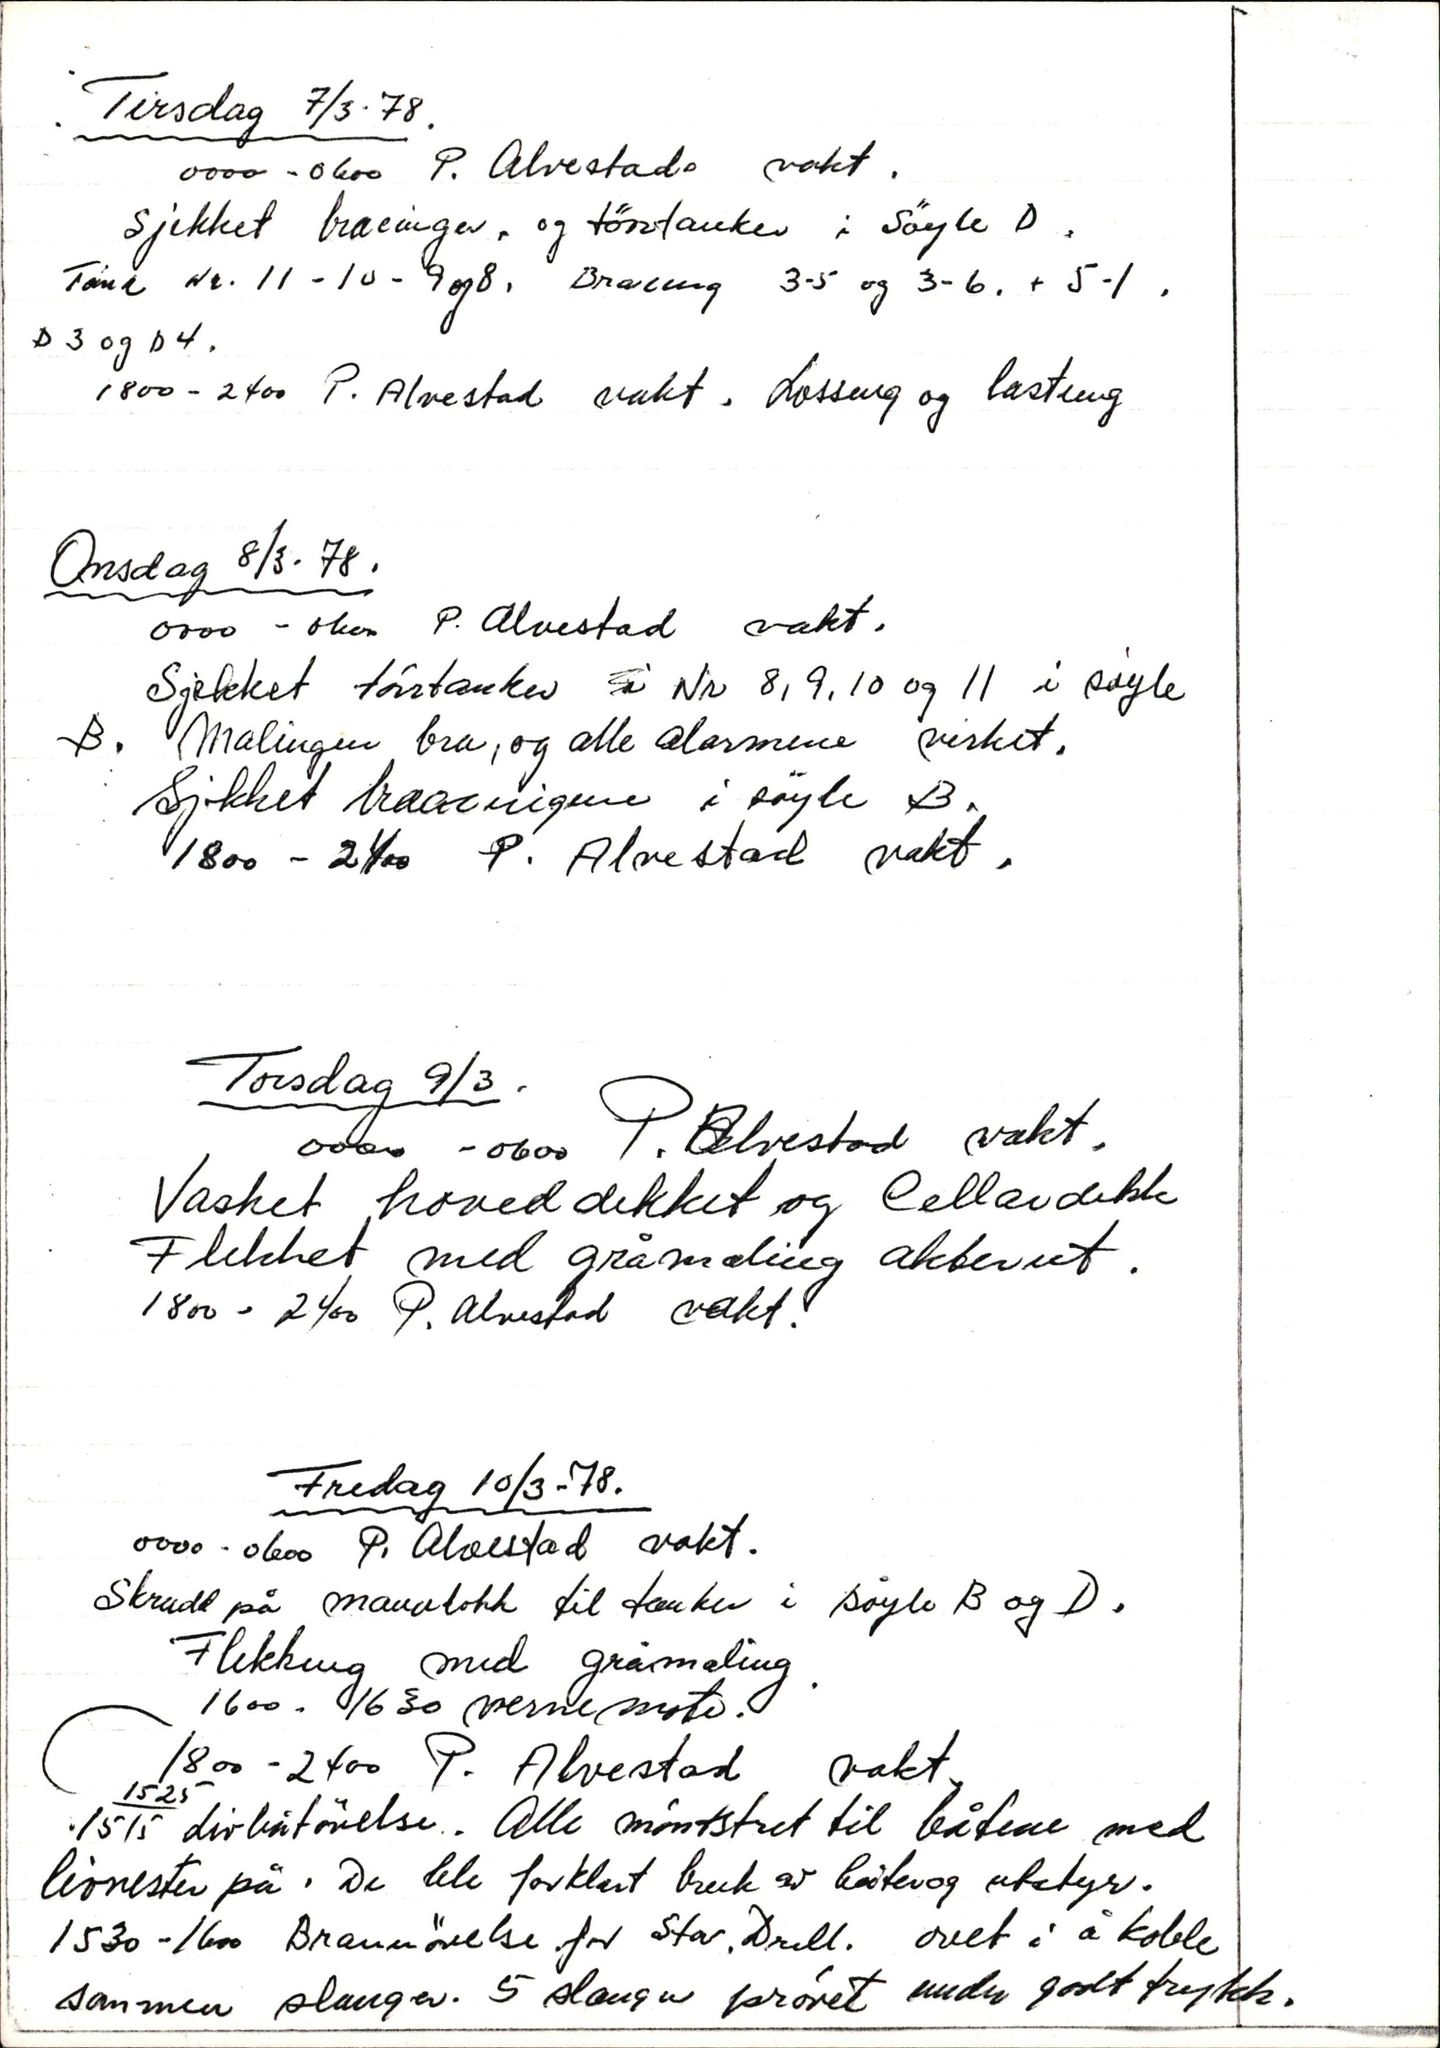 Tirsdag 7/3-78.
0000 - 0600 P. Alvestad. vakt.
Sjekket bracinger. og törrtanker i Söyle D.
Tank Nr. 11 - 10 - 9 og 8. Bracing 3-5 og 3-6. + 5-1.
D 3 og D 4.
1800 - 2400 P. Alvestad vakt. Lossing og lasting
Onsdag 8/3-78.
0000 - 0600 P. Alvestad vakt.
Sjekket törrtanker i Nr 8, 9, 10 og 11 i søyle
B. Malingen bra, og alle alarmene virket.
Sjekket bracingene i söyle B.
1800 - 2400 P. Alvestad vakt.
Torsdag 9/3.
0000 - 0600 P. Alvestad vakt.
Vasket hoveddekket og Cellardekk
Flekket med gråmaling akterut.
1800 - 2400 P. Alvestad vakt.
Fredag 10/3-78.
0000 - 0600 P. Alvestad vakt.
Skrudd på mannlokk til tanker i söyle B og D.
Flekking med gråmaling.
1600 - 1630 vernemøte.
1800 - 2400 P. Alvestad vakt.
1525
1515 Livbåtövelse. Alle mönstret til båtene med
livvester på. De ble forklart bruk av båter og utstyr.
1530 - 1600 Brannövelse for Stav. Drill. ovet i å koble
sammen slanger. 5 slanger prövet under godt trykk.